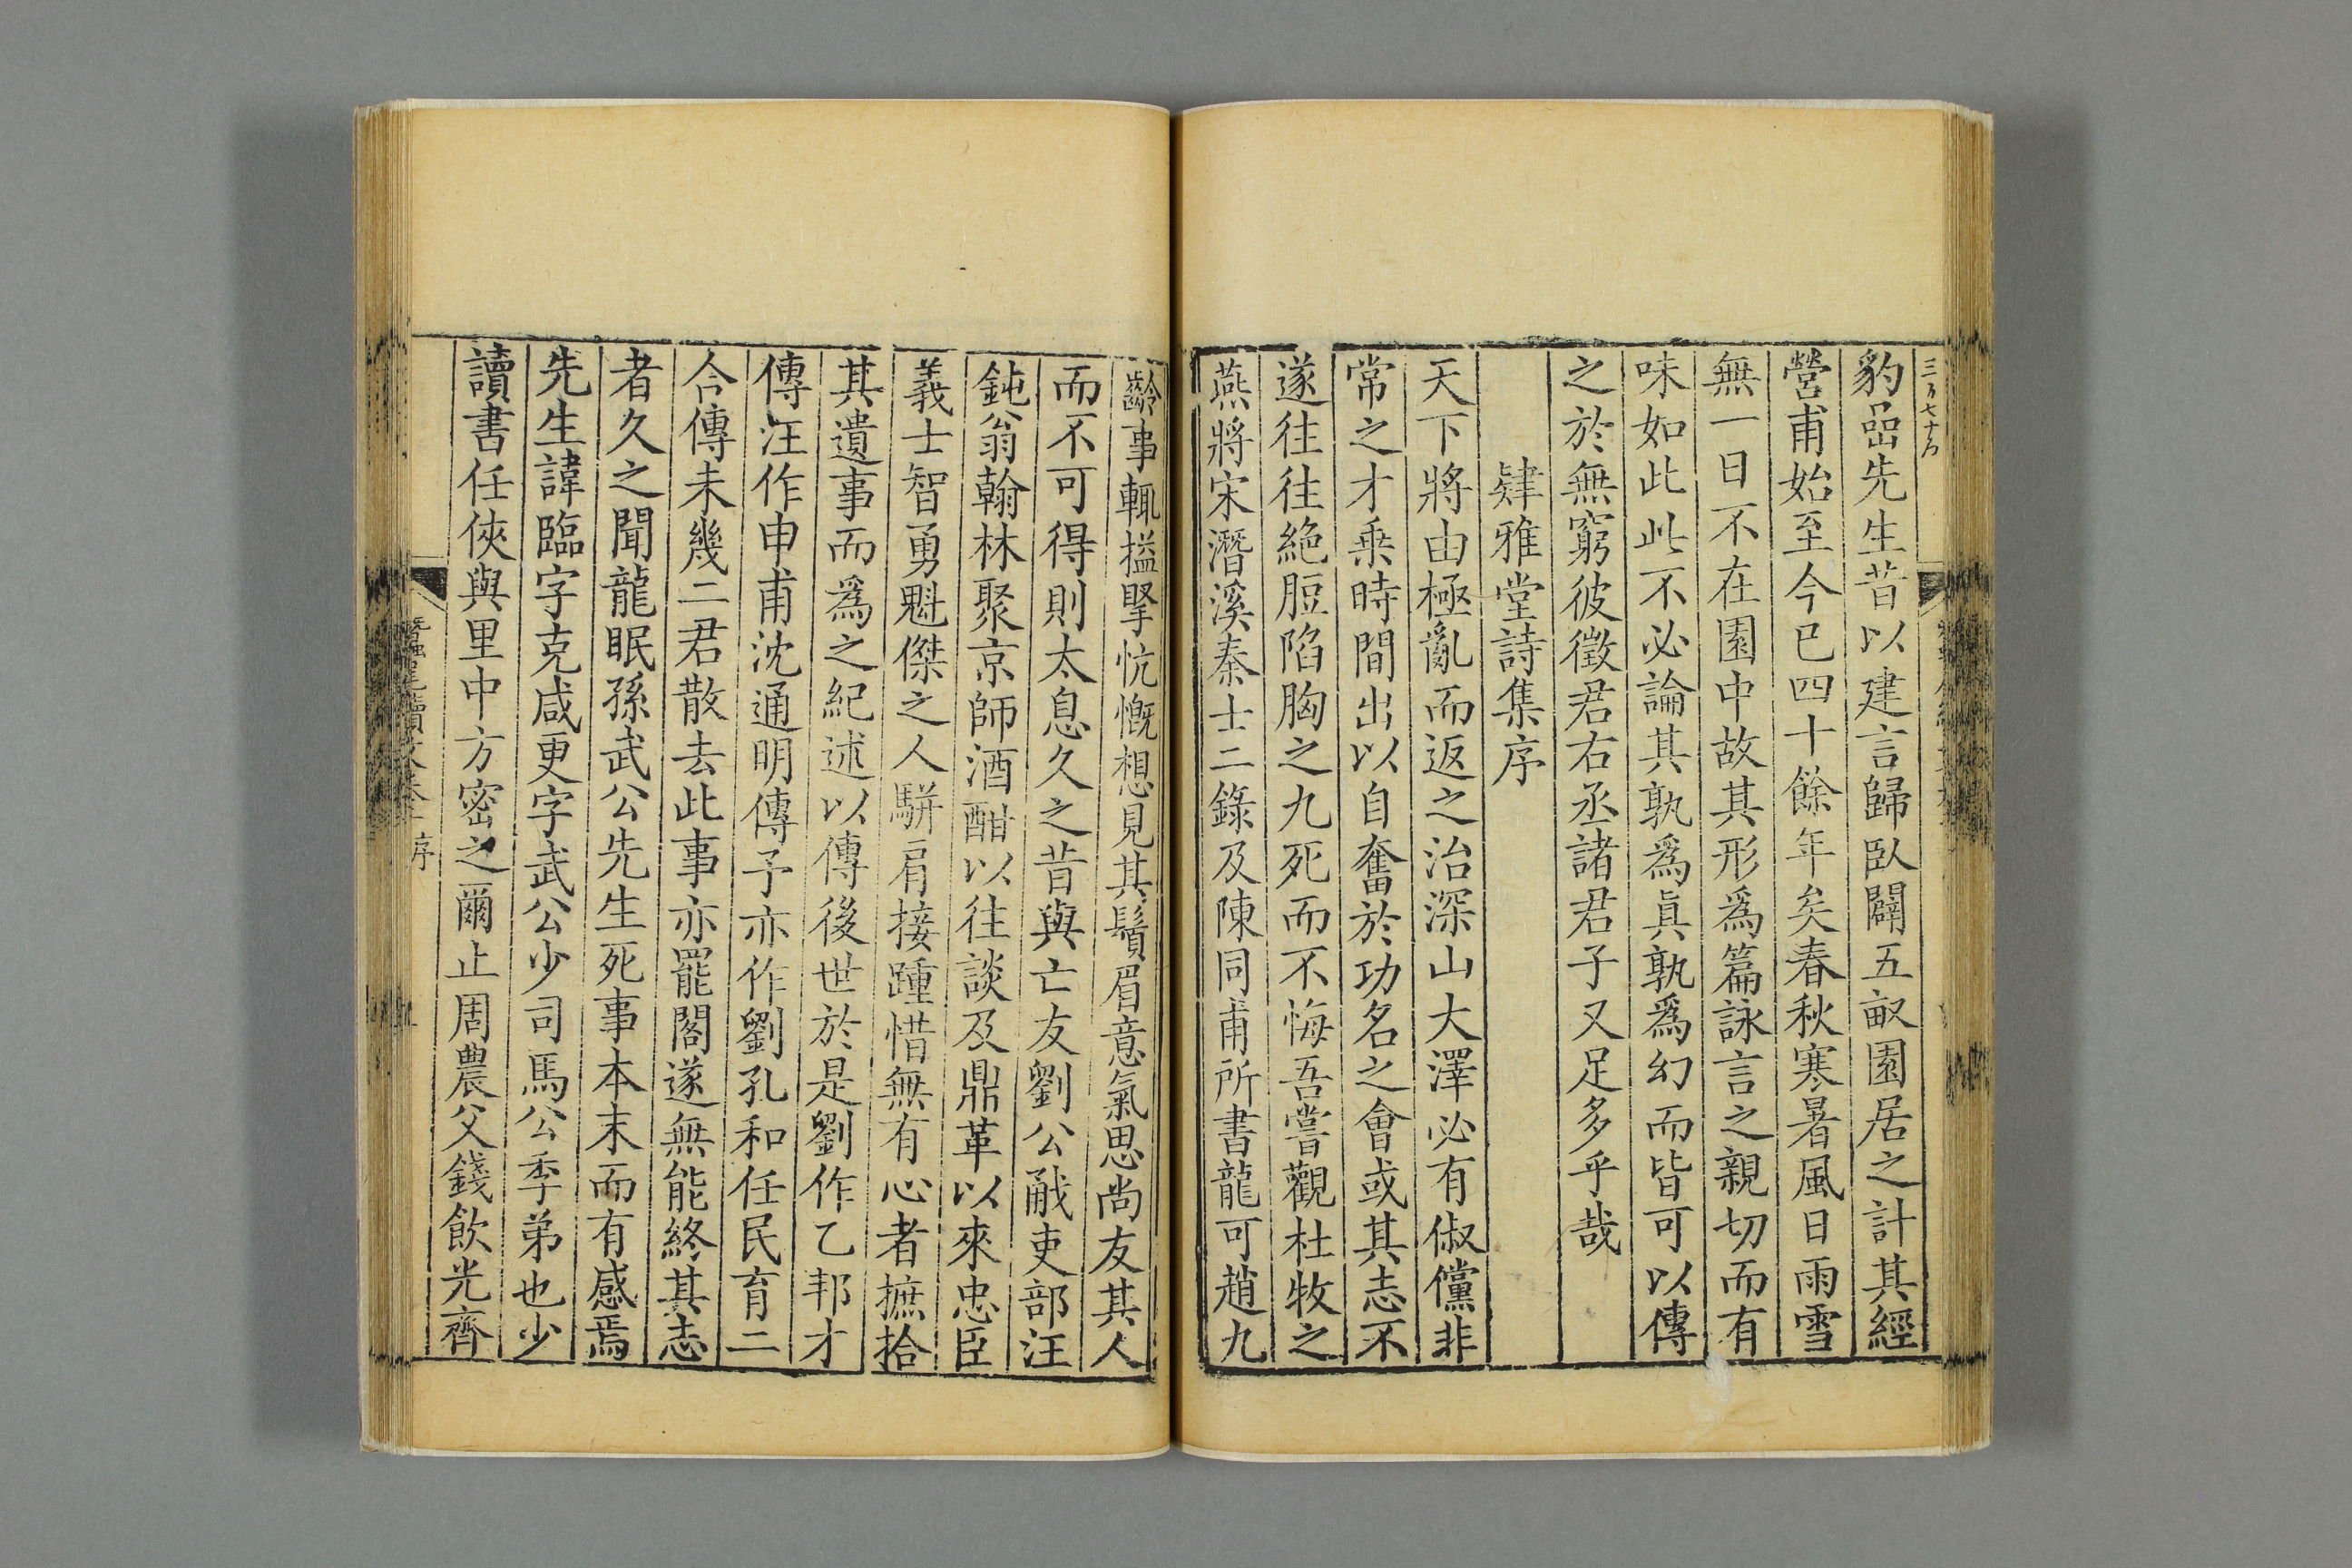 豹嵒先生昔以建言歸臥闢五畝園居之計其經
營甫始至今已四十餘年矣春秋寒暑風日雨雪
無一日不在園中故其形爲篇詠言之親切而有
味如此此不必論其孰爲眞孰爲幻而皆可以傳
之於無窮彼徵君右丞諸君子又足多乎哉
肄雅堂詩集序
天下將由極亂而返之治深山大澤必有俶儻非
常之才乗時間出以自奮於功名之會或其志不
遂往往絶脰陷胸之九死而不悔吾嘗觀杜牧之
燕將宋潛溪秦士二錄及陳同甫所書龍可趙九
齡事輒搤掔忼慨想見其鬚眉意氣思尚友其人
而不可得則太息久之昔與亡友劉公㦷吏部汪
鈍翁翰林聚京師酒酣以往談及鼎革以來忠臣
義士智勇魁傑之人駢肩接踵惜無有心者摭拾
其遺事而爲之紀述以傳後世於是劉作乙邦才
傳汪作申甫沈通明傳予亦作劉孔和任民育二
合傳未幾二君散去此事亦罷閣遂無能終其志
者久之聞龍眠孫武公先生死事本末而有感焉
先生諱臨字克咸更字武公少司馬公季弟也少
讀書任俠與里中方密之爾止周農父錢飲光齊
蠶尾續文卷 序